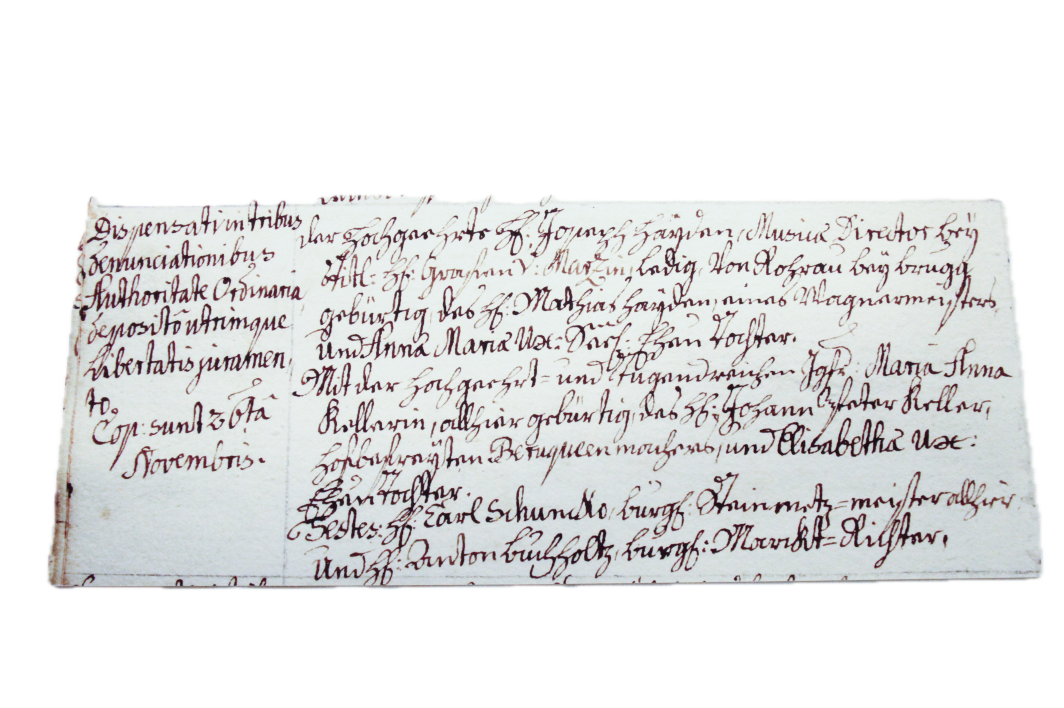 Dispensati in tribus
denunciationibus
Authoritate Ordinaria
deposito utrimque
Libertatis juramen,
to
Cop: sunt 26ta
Novembris.
der Hochgeehrte H: Joseph Hayden, Musicæ Director bey
titl: H: Grafen v: Marzin, ledig, von Rohrau bey brugg
gebürtig, des H: Mathias Hayden, eines Wagnermeisters,
und Anna Maria Ux: Seel: Ehen Tochter.
Mit der Hochgeehrt= und Tugendreichen Jgfr: Maria Anna
Kellerin, allhier gebürtig, des H: Johann Peter Keller,
Hofbefreyten Peruquenmachers, und Elisabetha Ux:
Ehen Tochter.
Testes: H: Carl Schuncko, burgl: Steinmetz=meister allhier
und H: Anton buchholtz, burgl: Marckt=Richter.